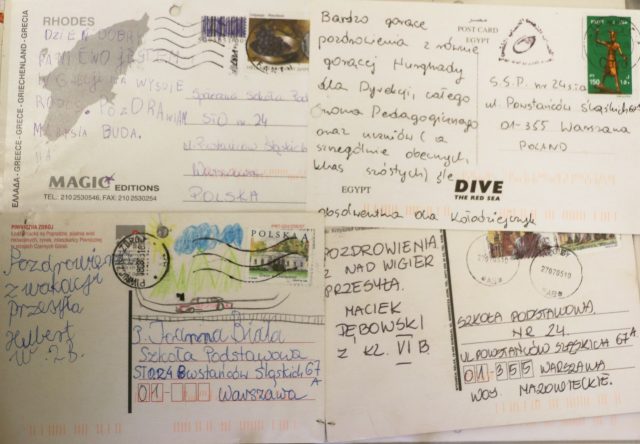 RHODES
ΕΛΛΑΔΑ - GREECE - GRECE - GRIECHENLAND - GRECIA
DZIEŃ DOBRY
PANI EWO JESTEM
W GRECJI NA WYSPIE
RODOS. POZDRAWIAM
MARYSIA BUDA.
IIA
MAGIC EDITIONS
TEL: 210 2530546, FAX: 210 2532571
Społeczna Szkoła Pod
STO nr 24
Powstańców Śląskich
Warszawa
POLSKA
POST CARD
EGYPT
150
Bardzo gorące
pozdrowienia z równie
gorącej Hurghady
dla Dyrekcji, całego
Grona Pedagogicznego
oraz uczniów (a
szczególnie obecnych
klas szóstych) śle
absolwentka Ola Kołodziejczyk
EGYPT
DIVE
THE RED SEA
S.S.P. nr 24
ul. Powstańców Śląskich 67a
01-355 Warszawa
POLAND
PIWNICZNA ZDRÓJ
Pozdrowienia
z wakacji
przesyła
Hubert
W. 2B.
POLSKA
P. Joanna
Szkoła Podstawowa
STO 24 Powstańców Śląskich 67
A
01-
Warszawa
POZDROWIENIA
ZNAD WIGIER
PRZESYŁA
MACIEK
DĘBOWSKI
Z KL. VI B.
SZKOŁA PODSTAWOWA
NR 24
UL POWSTAŃCÓW ŚLĄSKICH 67A
01-355 WARSZAWA
WOJ MAZOWIECKIE.